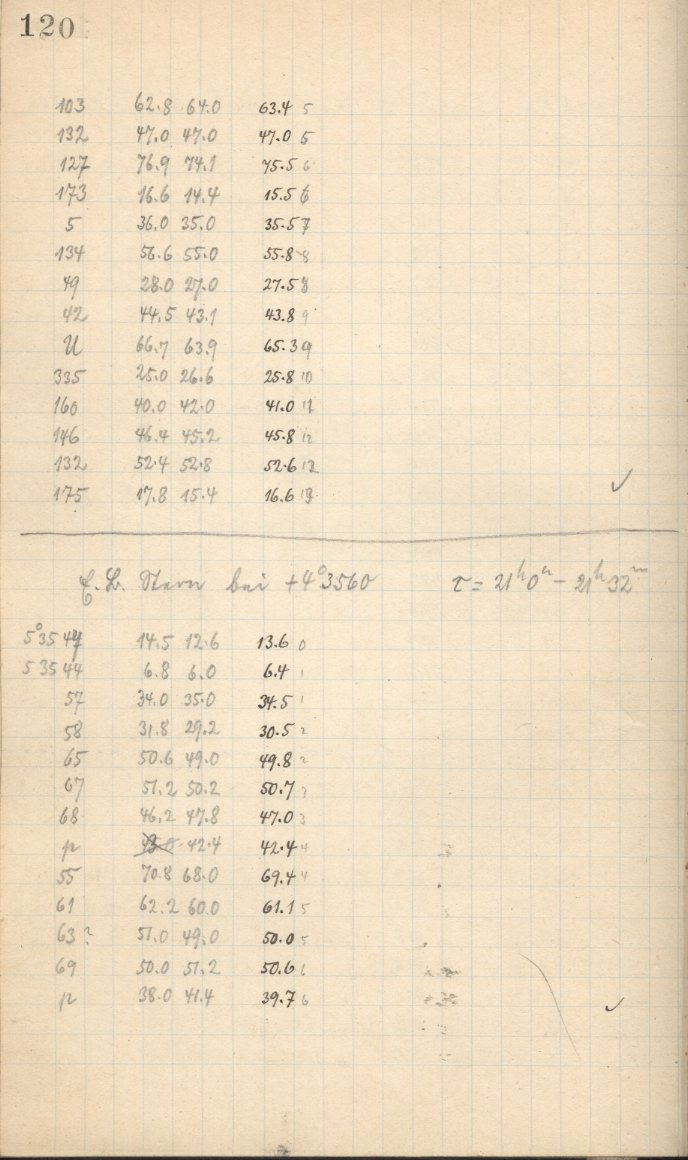 120
103 62.8 64.0 63.4 5
132 47.0 47.0 47.0 5
127 76.9 74.1 75.5 6
173 16.6 14.4 15.5 6
5 36.0 35.0 35.5 7
134 56.6 55.0 55.8 8
49 28.0 27.0 27.5 8
42 44.5 43.1 43.8 9
U 66.7 63.9 65.3 9
335 25.0 26.6 25.8 10
160 40.0 42.0 41.0 11
146 46.4 45.2 45.8 12
132 52.4 52.8 52.6 12
175 17.8 15.4 16.6 13
✓
Stern bei +4°3560 τ = 21ʰ0ᵐ - 21ʰ32ᵐ
5°3547 14.5 12.6 13.6 0
5 3544 6.8 6.0 6.4 1
57 34.0 35.0 34.5 1
58 31.8 29.2 30.5 2
65 50.6 49.0 49.8 2
67 51.2 50.2 50.7 3
68 46.2 47.8 47.0 3
p 42.4 42.4 4
55 70.8 68.0 69.4 4
61 62.2 60.0 61.1 5
63? 51.0 49.0 50.0 5
69 50.0 51.2 50.6 6
p 38.0 41.4 39.7 6
✓